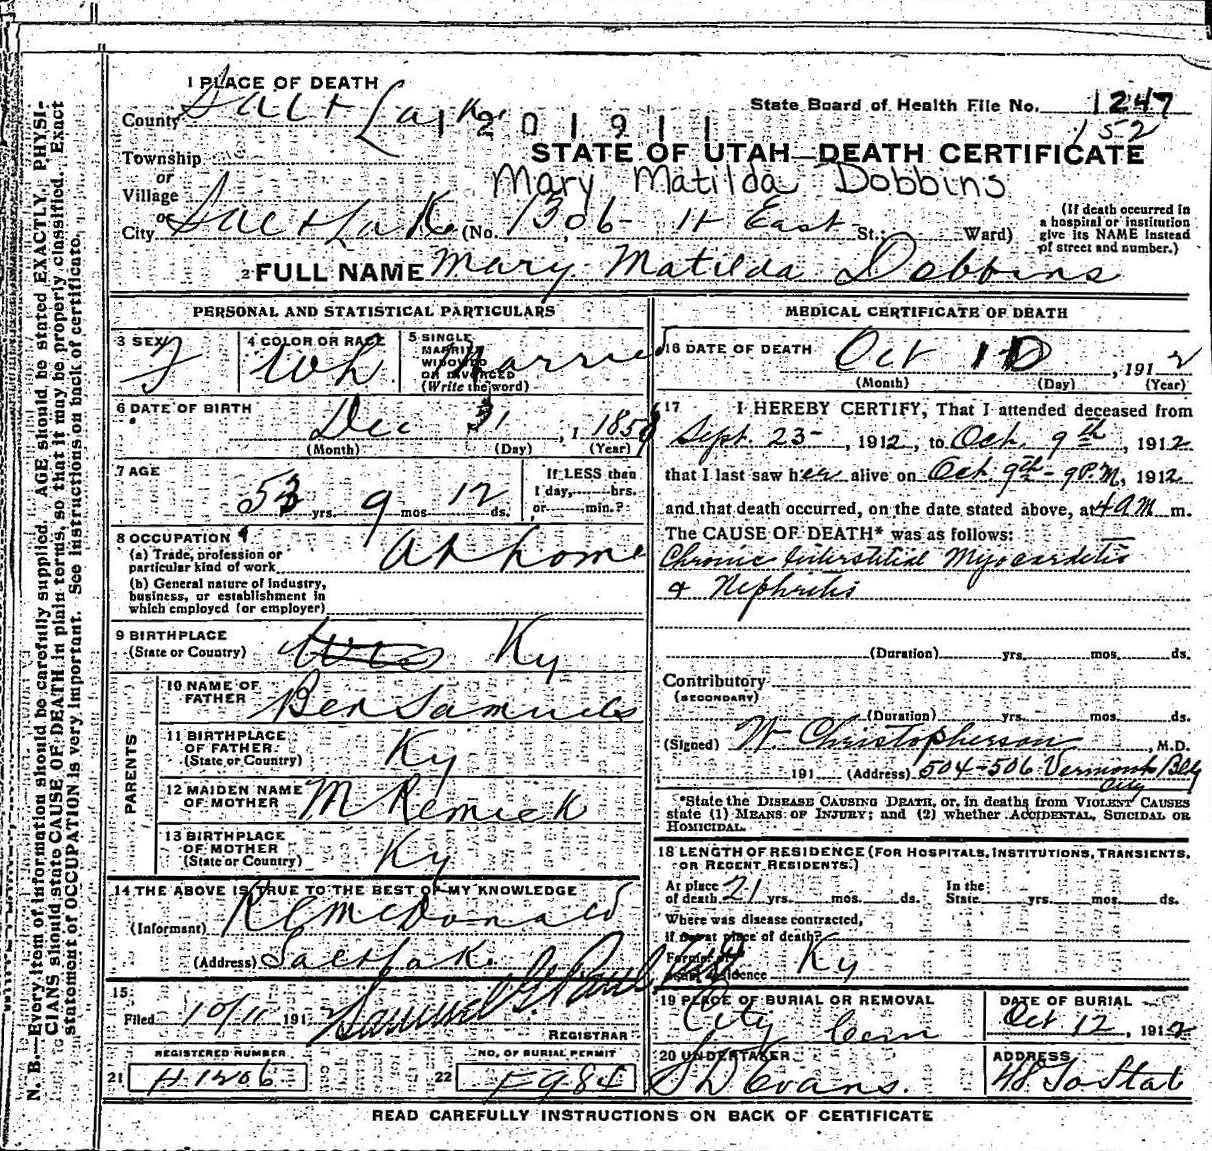 N. B.—Every item of information should be carefully supplied. AGE should be stated EXACTLY. PHYSI-
CIANS should state CAUSE OF DEATH in plain terms, so that it may be properly classified. Exact
statement of OCCUPATION is very important. See instructions on back of certificate.
1 PLACE OF DEATH
County Salt Lake
1201911
State Board of Health File No. 1247
152
Township
or
Village
or
City Salt Lake (No. 1306- 11 East St.; Ward)
STATE OF UTAH—DEATH CERTIFICATE
Mary Matilda Dobbins
(If death occurred in
a hospital or institution
give its NAME instead
of street and number.)
2 FULL NAME Mary Matilda Dobbins
PERSONAL AND STATISTICAL PARTICULARS
3 SEX F
4 COLOR OR RACE Wh
5 SINGLE
MARRIED
WIDOWED
OR DIVORCED
(Write the word) Married
6 DATE OF BIRTH Dec 31, 1858
(Month) (Day) (Year)
7 AGE
53 yrs. 9 mos 12 ds.
If LESS than
1 day, hrs.
or min.?
8 OCCUPATION
(a) Trade, profession or
particular kind of work At home
(b) General nature of industry,
business, or establishment in
which employed (or employer)
9 BIRTHPLACE
(State or Country) Ky
PARENTS
10 NAME OF
FATHER Ben Samuels
11 BIRTHPLACE
OF FATHER
(State or Country) Ky
12 MAIDEN NAME
OF MOTHER M Remick
13 BIRTHPLACE
OF MOTHER
(State or Country) Ky
14 THE ABOVE IS TRUE TO THE BEST OF MY KNOWLEDGE
(Informant) R E McDonald
(Address) Salt Lake.
15
Filed 10/11 1912 Samuel G. Paul
REGISTRAR
REGISTERED NUMBER
21 H 1206
NO. OF BURIAL PERMIT
22 F984
MEDICAL CERTIFICATE OF DEATH
16 DATE OF DEATH Oct 10, 1912
(Month) (Day) (Year)
17 I HEREBY CERTIFY, That I attended deceased from
Sept. 23-, 1912, to Oct. 9th, 1912
that I last saw her alive on Oct. 9th- 9 P.M, 1912
and that death occurred, on the date stated above, at 4 AM m.
The CAUSE OF DEATH* was as follows:
Chronic Interstitial Myocarditis
& Nephritis
(Duration) yrs. mos. ds.
Contributory
(SECONDARY)
(Duration) yrs. mos. ds.
(Signed) W. Christopherson, M.D.
191 (Address) 504-506 Vermont Bldg
City
*State the DISEASE CAUSING DEATH, or, in deaths from VIOLENT CAUSES
state (1) MEANS OF INJURY; and (2) whether ACCIDENTAL, SUICIDAL OR
HOMICIDAL.
18 LENGTH OF RESIDENCE (FOR HOSPITALS, INSTITUTIONS, TRANSIENTS,
OR RECENT RESIDENTS.)
At place
of death 21 yrs. mos. ds.
In the
State yrs. mos. ds.
Where was disease contracted,
if not at place of death?
Former or
usual residence Ky
19 PLACE OF BURIAL OR REMOVAL
City Cem
DATE OF BURIAL
Oct 12, 1912
20 UNDERTAKER
S D Evans.
ADDRESS
48 So State
READ CAREFULLY INSTRUCTIONS ON BACK OF CERTIFICATE